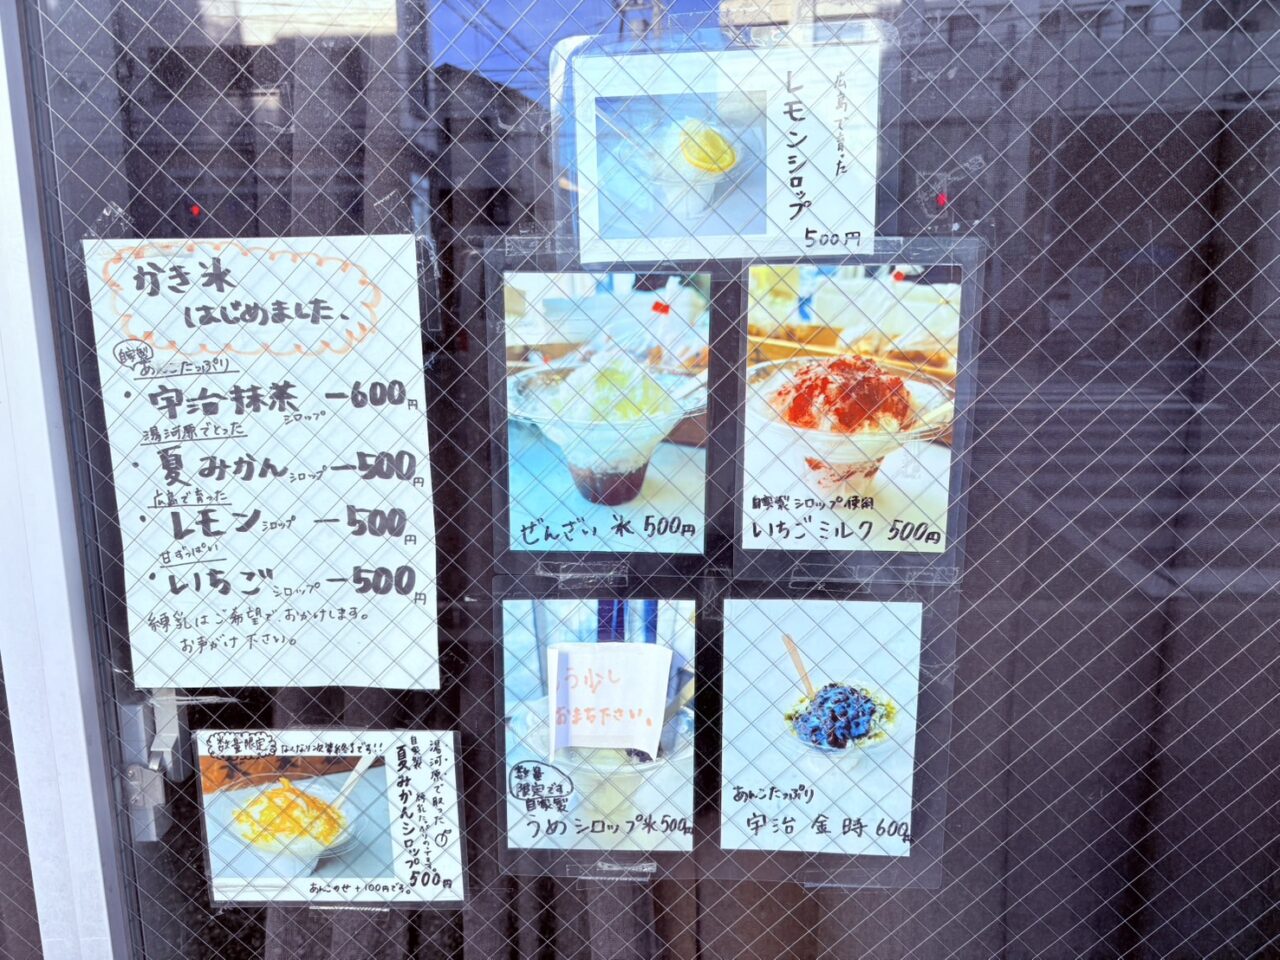 広島で育った
レモンシロップ
500円
かき氷
はじめました、
自家製
あんこたっぷり
・宇治抹茶シロップ －600円
湯河原でとった
・夏みかんシロップ －500円
広島で育った
・レモンシロップ －500円
甘ずっぱい
・いちごシロップ －500円
練乳はご希望で、おかけします。
お声がけ下さい。
ぜんざい氷 500円
自家製シロップ使用
いちごミルク 500円
う少し
おまち下さい。
数量
限定です
自家製
うめシロップ氷 500円
あんこたっぷり
宇治金時 600円
数量限定
なくなり次第終了です!!
湯河原で取った
自家製
夏みかんシロップ
500円
あんこのせ＋100円です。